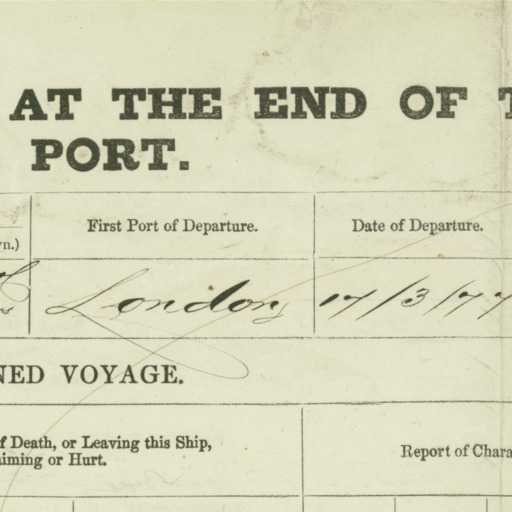 AT THE END OF
PORT.
First Port of Departure.
Date of Departure.
London 17/3/77
NED VOYAGE.
f Death, or Leaving this Ship,
iming or Hurt.
Report of Chara